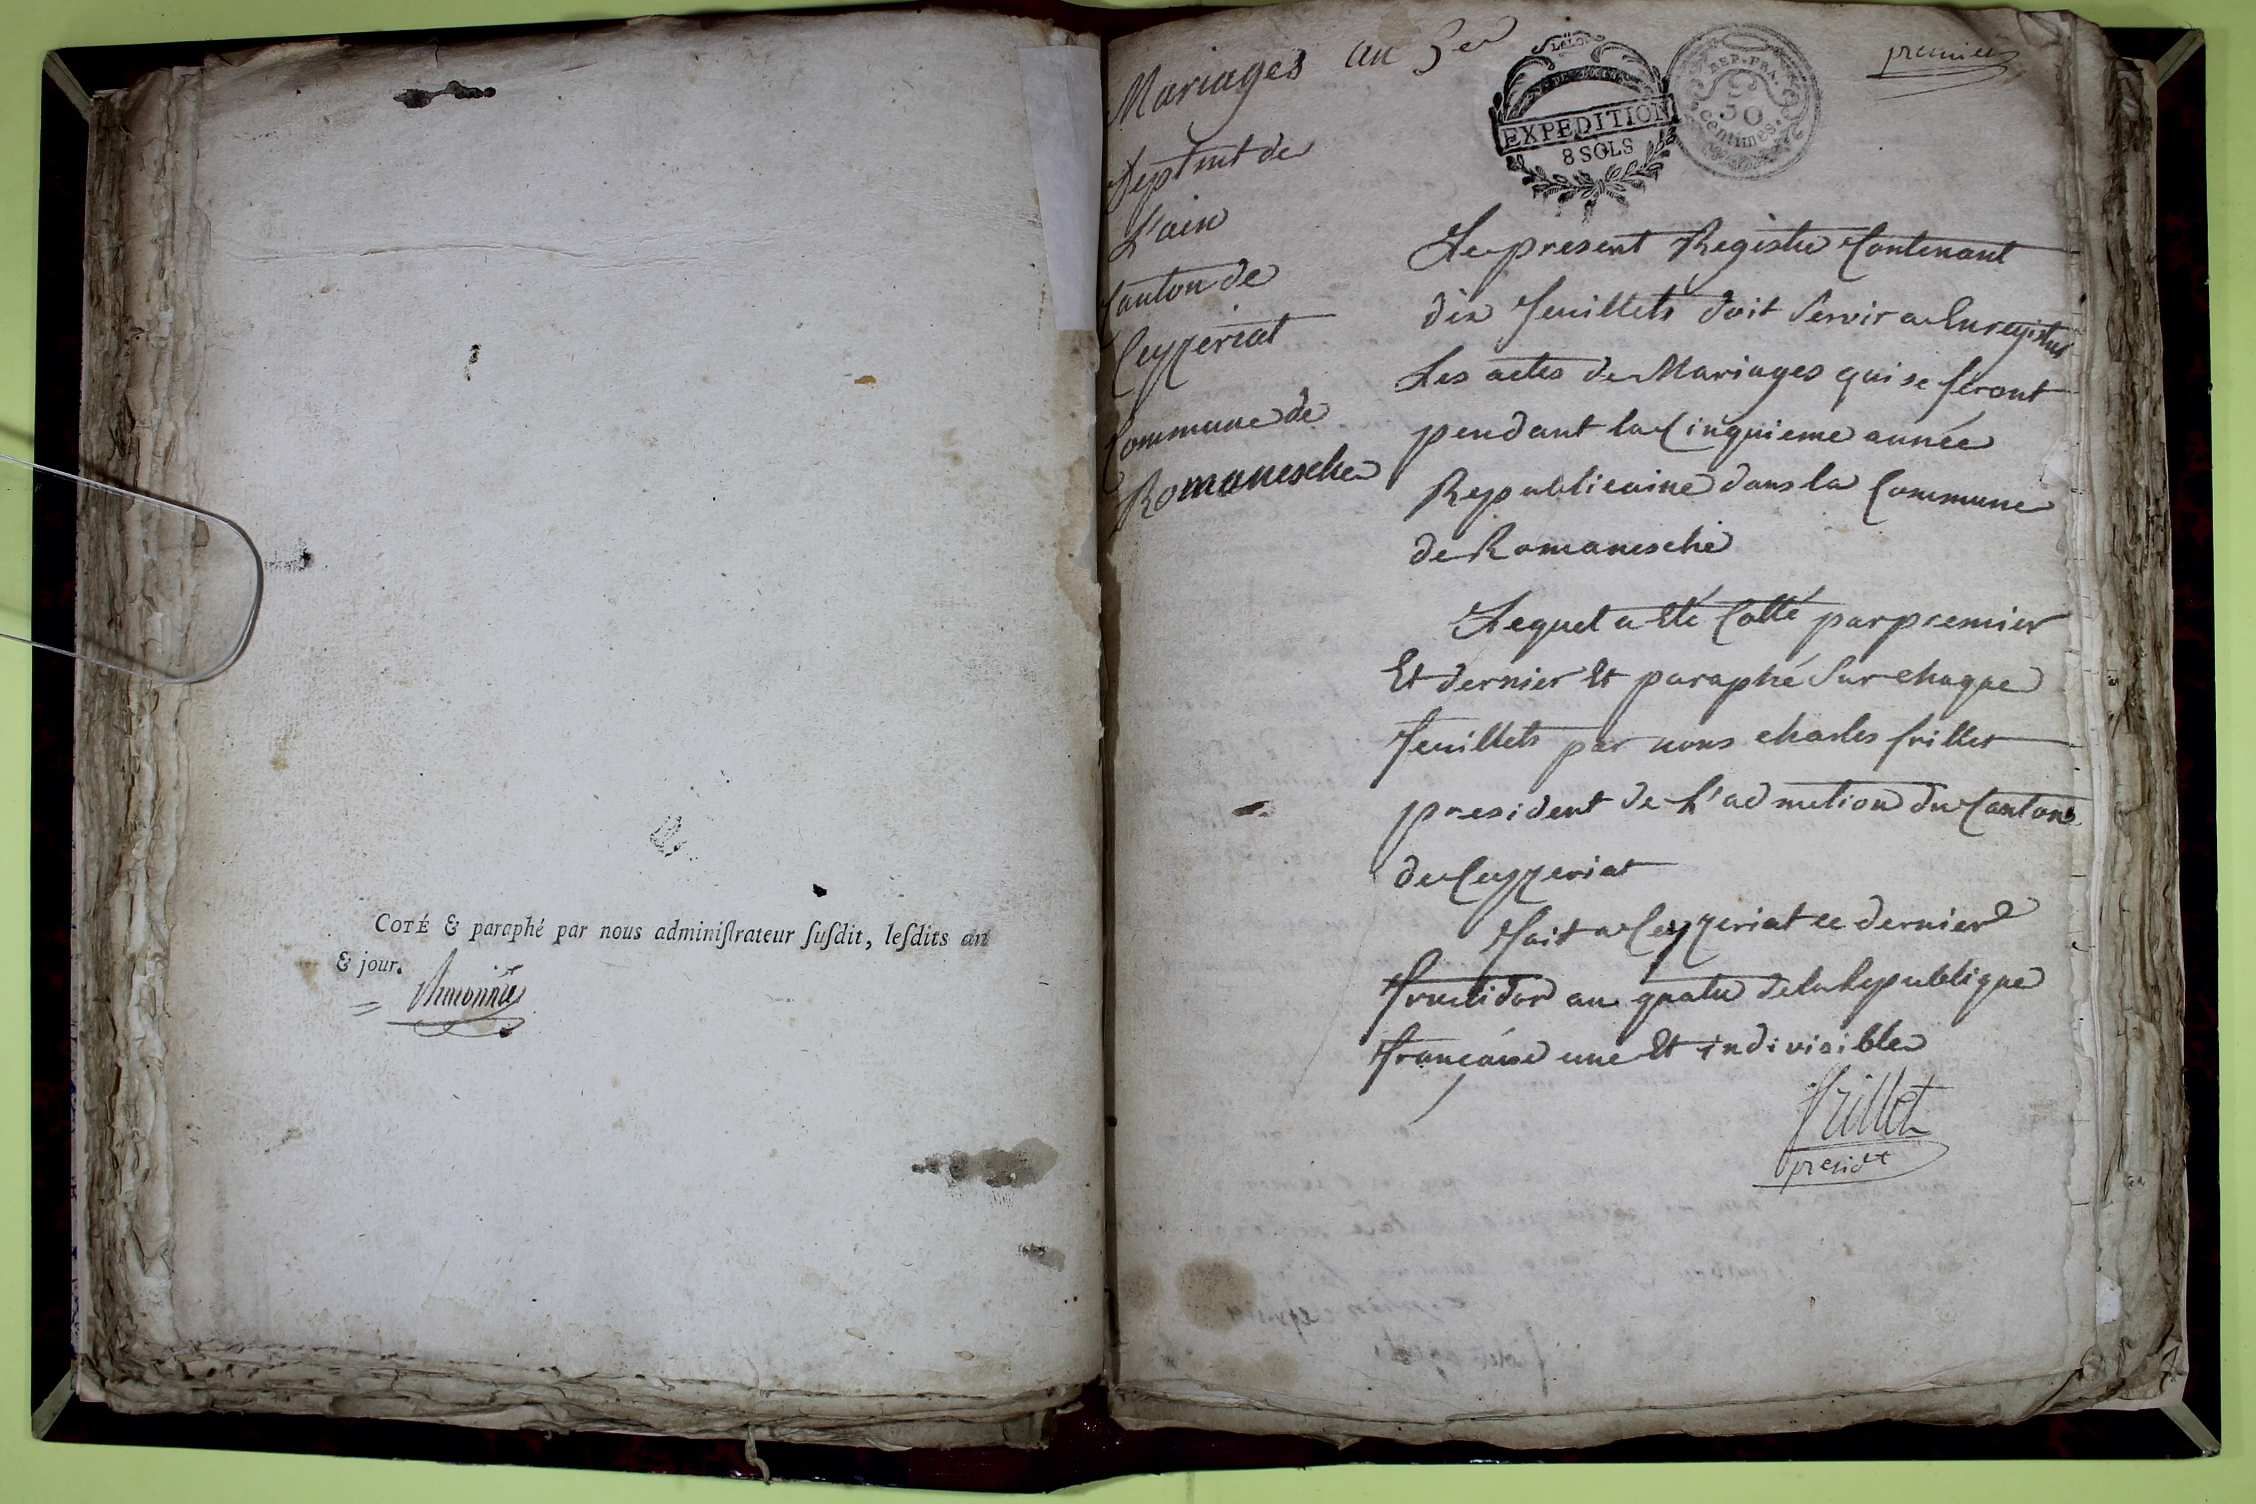 COTÉ & paraphé par nous adminiſtrateur ſuſdit, leſdits an
& jour.
Mariages an 5er
premier
LA LOI
EXPEDITION
8 SOLS
REP. FRA.
50
centimes.
Deptmt de
L'ain
Canton de
Ceyzeriat
Commune de
Romanesche
Le present Registre Contenant
dix feuillets doit servir a Enregistrer
Les actes de Mariages qui se feront
pendant la Cinquieme année
Republicaine dans la Commune
de Romanesche
Lequel a Eté Cotté par premier
Et dernier Et paraphé sur chaque
feuillets par nous charles frillet
president de L'admetion du Canton
de Ceyzeriat
Fait a Ceyzeriat ce dernier
fructidor an quatre de la Republique
francaise une Et indivisible
Frillet
presidt